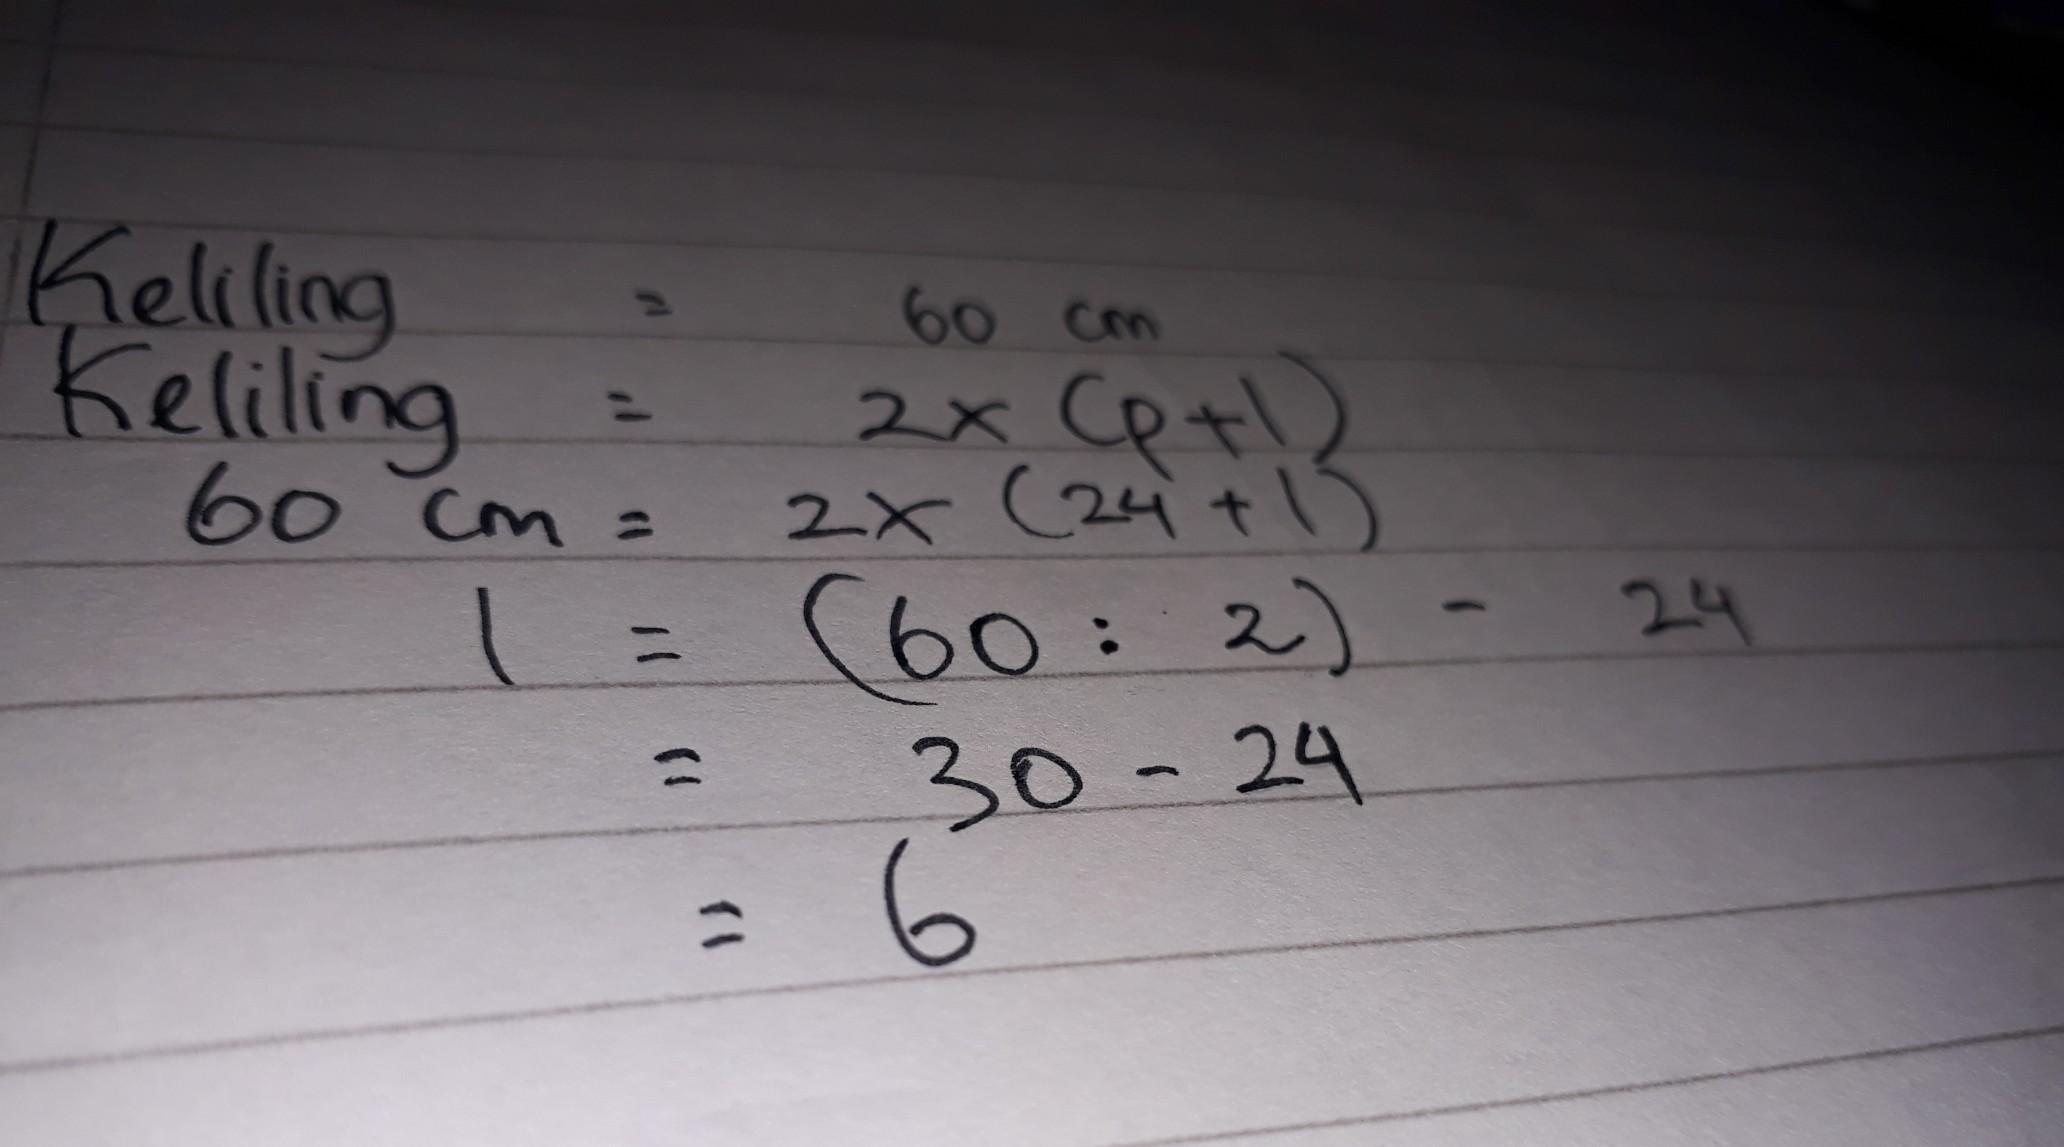 Keliling = 60 cm
Keliling = 2x (p+l)
60 cm = 2x (24 + l)
l = (60 : 2) - 24
= 30 - 24
= 6